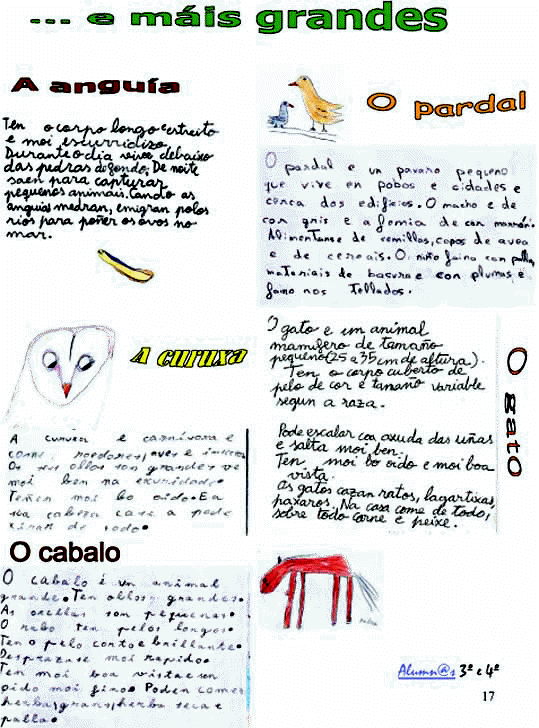 ... e máis grandes
A anguía
Ten o corpo longo e estreito
e moi escurridizo
Durante o día vive debaixo
das pedras do fondo. De noite
saen para capturar
pequenos animais. Cando as
anguias medran, emigran polos
rios para poñer os ovos no
mar.
O pardal
O pardal e un paxaro pequeno
que vive en pobos e cidades e
cerca dos edificios. O macho e de
cor gris e a femia de cor marrón.
Alimentanse de semillas, copos de avea
e de cereais. O niño faino con palla,
materiais de basura e con plumas e
faino nos tellados.
A curuxa
A curuxa e carnívora e
come roedores, aves e
Os seus ollos son grandes ve
moi ben na escuridade.
Teñen moi bo oido. E a
sua cabeza case a pode
xirar de todo.
O gato
O gato e un animal
mamifero de tamaño
pequeno (25 a 35 cm de altura).
Ten o corpo cuberto de
pelo de cor e tamaño variable
segun a raza.
Pode escalar coa axuda das uñas
e salta moi ben.
Ten moi bo oido e moi boa
vista.
Os gatos cazan ratos, lagartixas,
paxaros. Na casa come de todo,
sobre todo carne e peixe.
O cabalo
O cabalo é un animal
grande. Ten ollos grandes.
As orellas son pequenas.
O rabo ten pelos longos.
Ten o pelo corto e brillante.
Desprazase moi rapido.
Ten moi boa vista e sen
oido moi fino. Poden comer
herba, grans, herba seca e
palla.
Alumn@s 3º e 4º
17